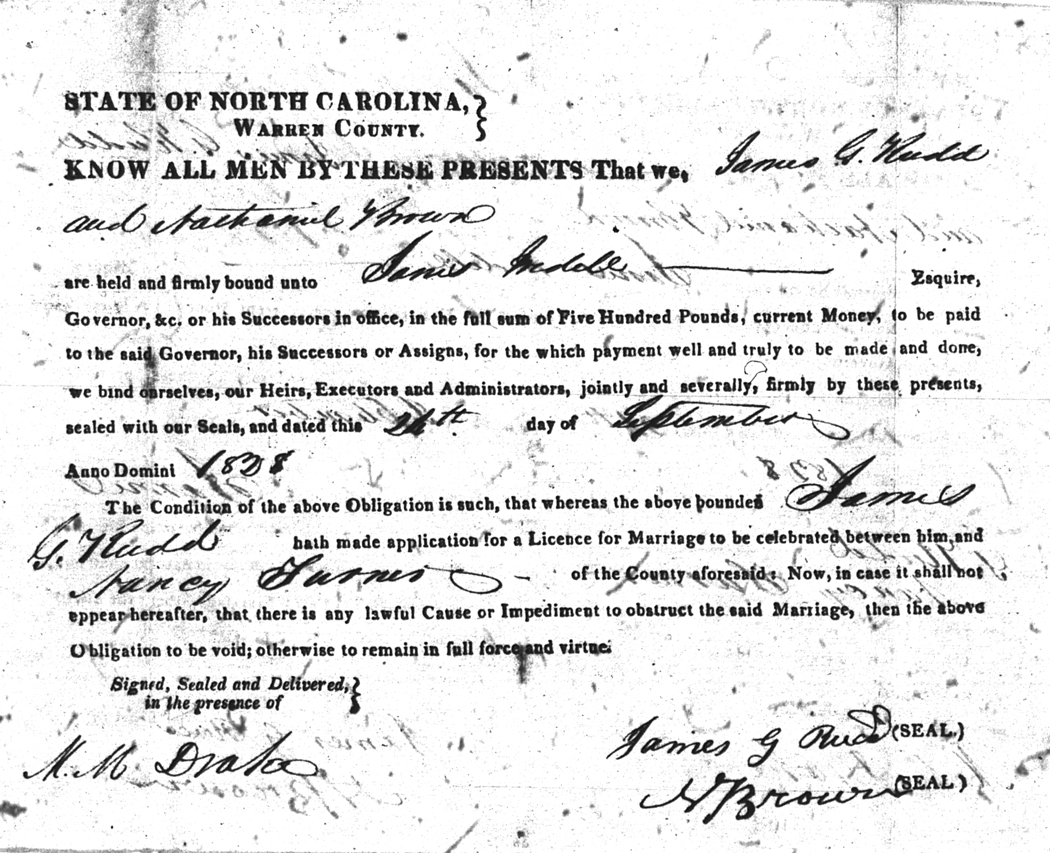 STATE OF NORTH CAROLINA,
WARREN COUNTY.
KNOW ALL MEN BY THESE PRESENTS That we, James G. Rudd
and Nathaniel Brown
are held and firmly bound unto James Iredell Esquire,
Governor, &c. or his Successors in office, in the full sum of Five Hundred Pounds, current Money, to be paid
to the said Governor, his Successors or Assigns, for the which payment well and truly to be made and done,
we bind ourselves, our Heirs, Executors and Administrators, jointly and severally, firmly by these presents,
sealed with our Seals, and dated this day of September
Anno Domini 1828
The Condition of the above Obligation is such, that whereas the above bounden James
G. Rudd hath made application for a Licence for Marriage to be celebrated between him and
Nancy Turner of the County aforesaid: Now, in case it shall not
appear hereafter, that there is any lawful Cause or Impediment to obstruct the said Marriage, then the above
Obligation to be void; otherwise to remain in full force and virtue.
Signed, Sealed and Delivered,
in the presence of
James G Rudd (SEAL.)
M. M. Drake
N Brown (SEAL.)